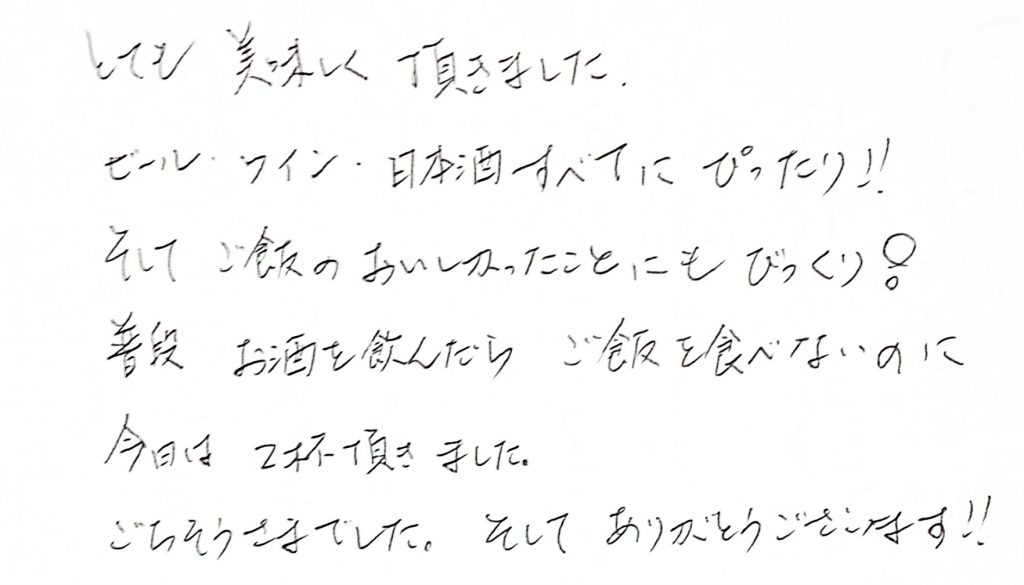 とても 美味しく 頂きました.
ビール・ワイン・日本酒すべてに ぴったり!!
そして ご飯の おいしかったことにも びっくり!
普段 お酒を飲んだら ご飯を食べないのに
今日は 2杯頂きました。
ごちそうさまでした。そして ありがとうございます!!